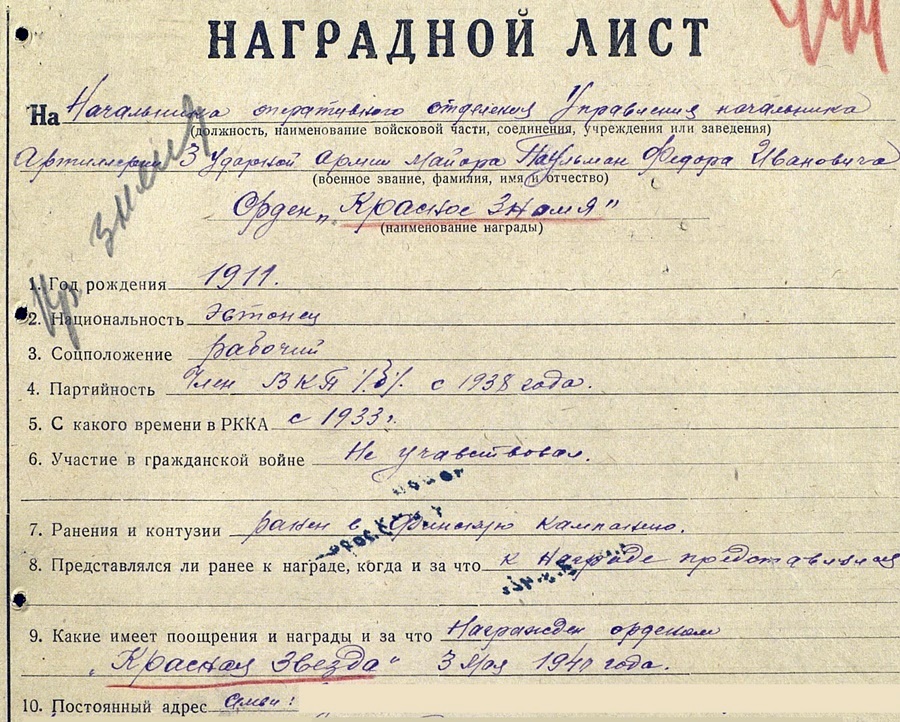 НАГРАДНОЙ ЛИСТ
На Начальника оперативного отделения Управления начальника
(должность, наименование войсковой части, соединения, учреждения или заведения)
Артиллерии 3 Ударной Армии майора Паульман Федора Ивановича
(военное звание, фамилия, имя и отчество)
Орден „Красное Знамя"
(наименование награды)
Кр. знамя
1. Год рождения 1911.
2. Национальность Эстонец
3. Соцположение рабочий
4. Партийность Член ВКП /б/. с 1938 года.
5. С какого времени в РККА с 1933 г.
6. Участие в гражданской войне Не учавствовал.
7. Ранения и контузии ранен в Финскую Кампанию.
8. Представлялся ли ранее к награде, когда и за что к награде представлялся
9. Какие имеет поощрения и награды и за что Награжден орденом
„Красная Звезда" 3 мая 194 года.
10. Постоянный адрес Семьи: